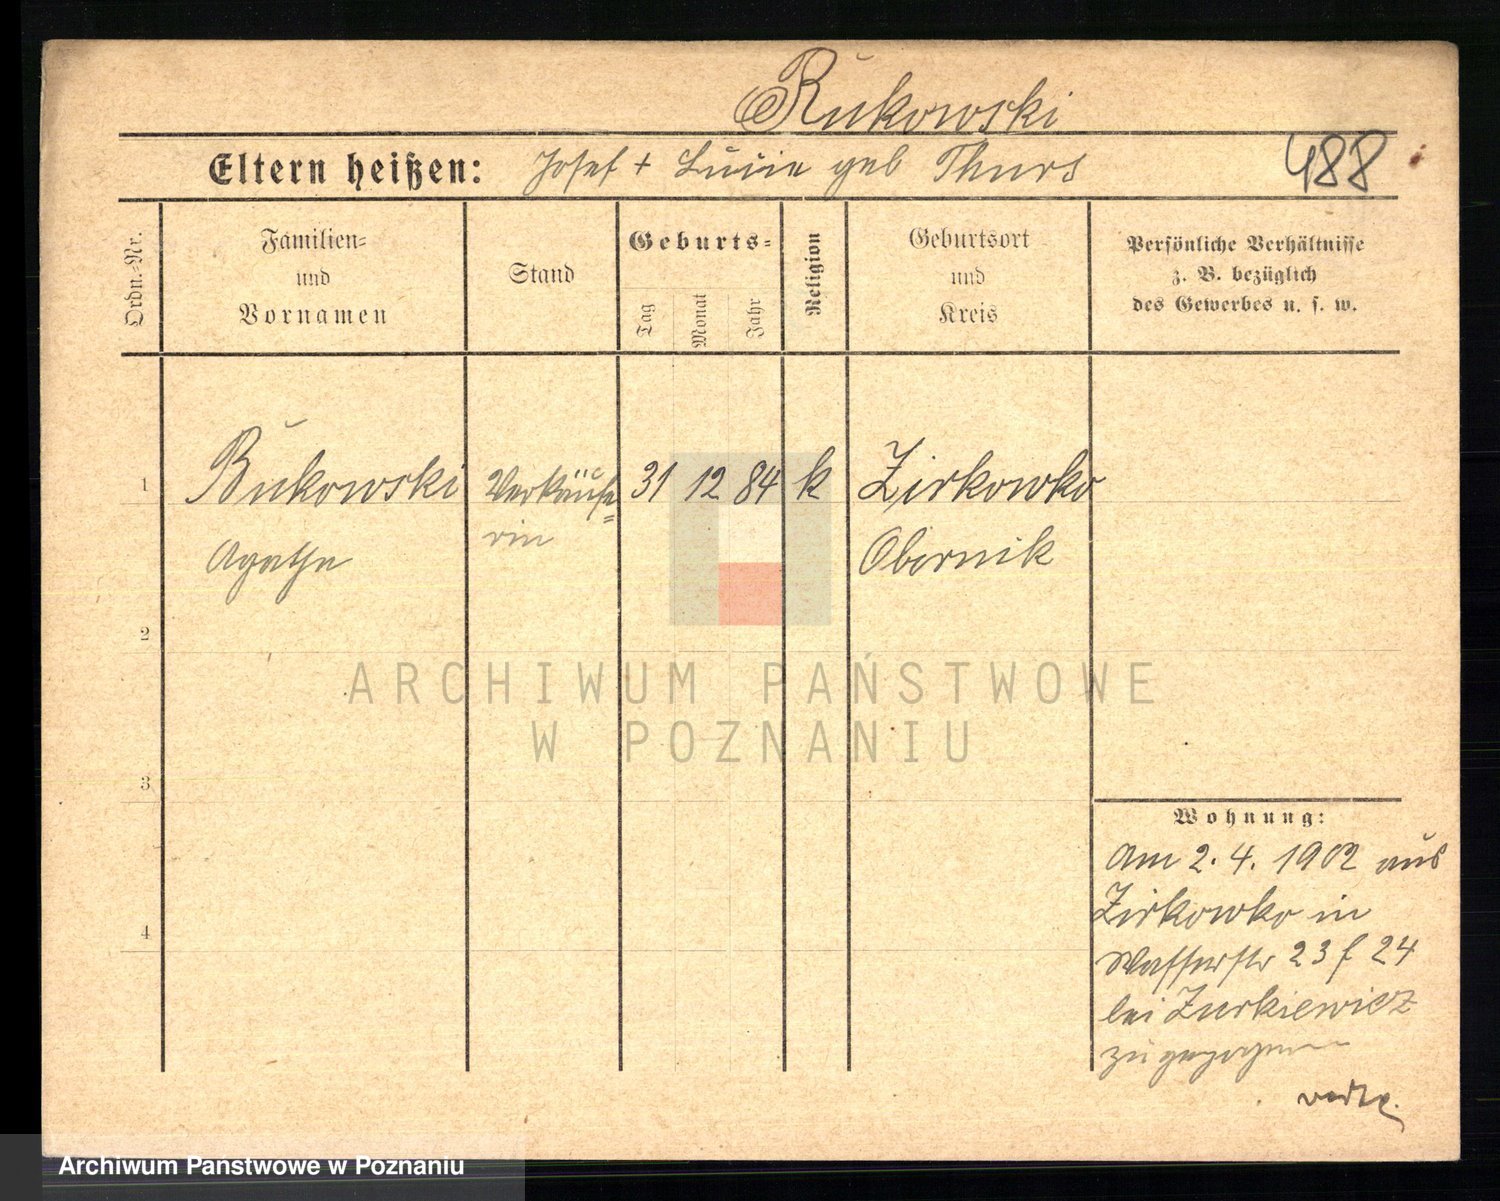 Rukowski
Eltern heißen: Josef + Luzie geb Thurs
488
Ordn.-Nr.
Familien-
und
Vornamen
Stand
Geburts-
Tag
Monat
Jahr
Religion
Geburtsort
und
Kreis
Persönliche Verhältnisse
z. B. bezüglich
des Gewerbes u. s. w.
1 Bukowski Verkäufe= 31 12 84 k Zirkowko
rin
Agathe Obornik
2
ARCHIWUM PAŃSTWOWE
W POZNANIU
3
Wohnung:
Am 2. 4. 1902 aus
Zirkowko in
4
Wasserstr 23 f 24
bei Zurkiewicz
zugezogen
Archiwum Panstwowe w Poznaniu